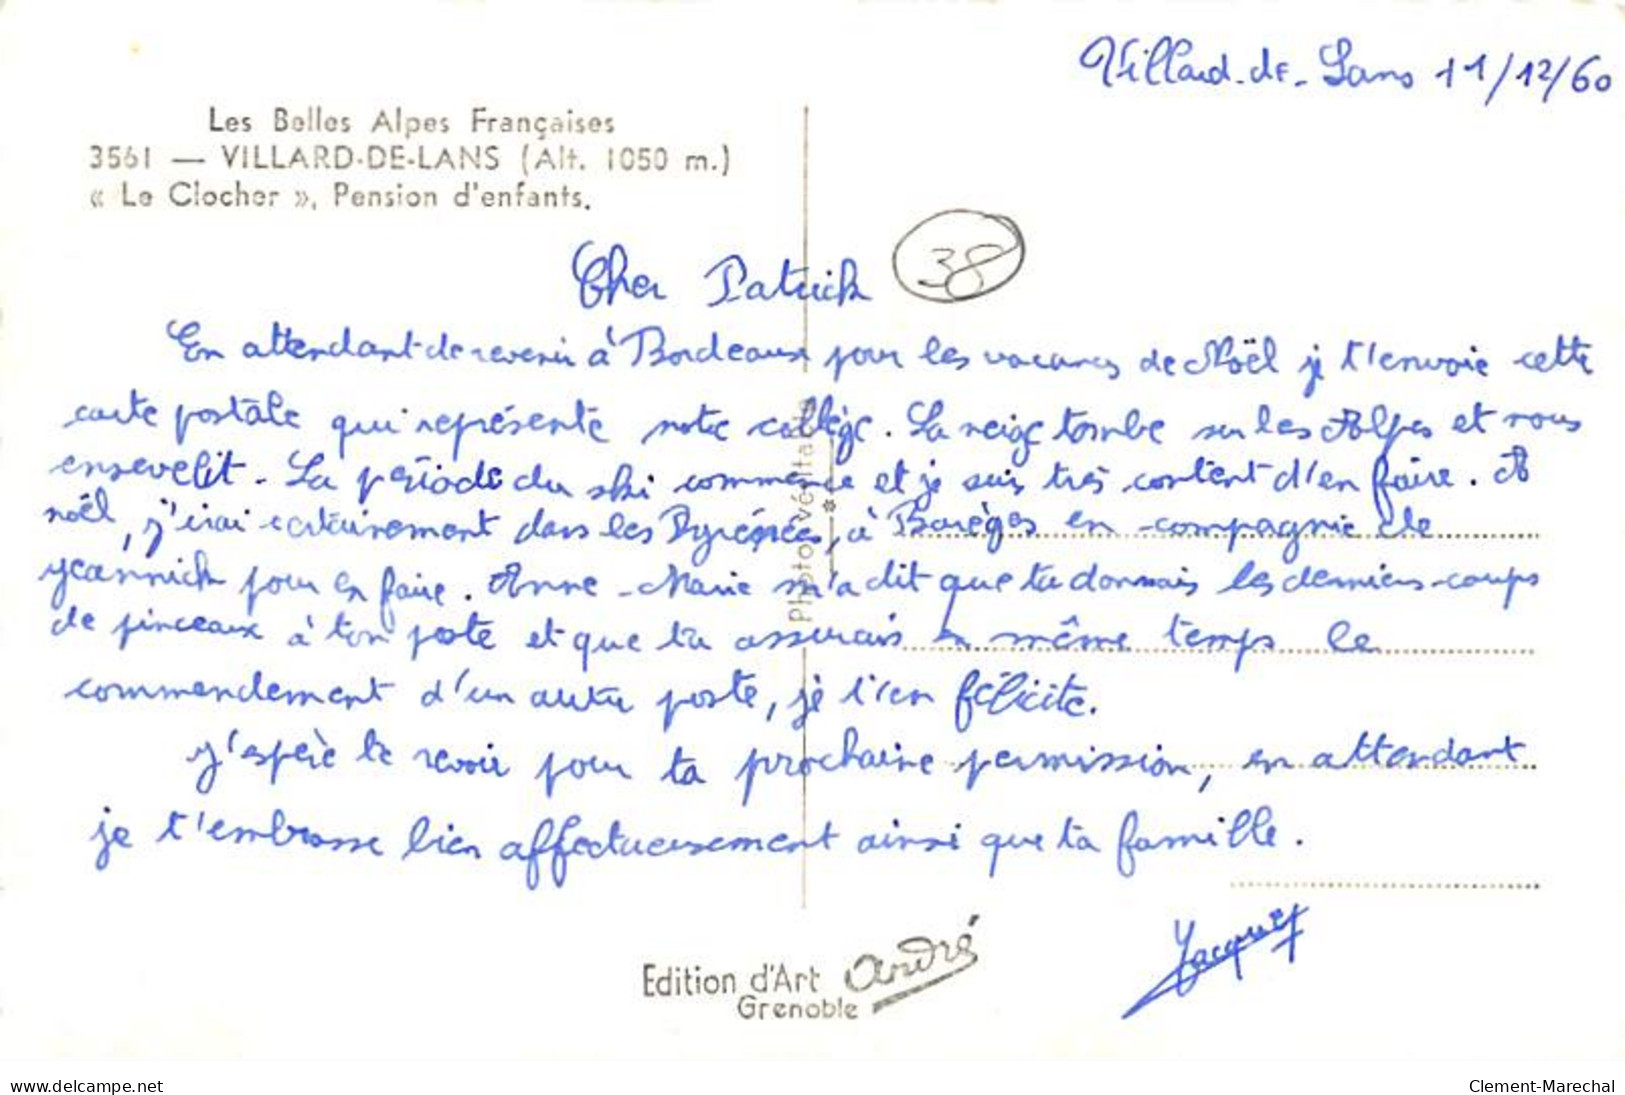 Villard-de-Lans 11/12/60
Les Belles Alpes Françaises
3561 — VILLARD-DE-LANS (Alt. 1050 m.)
« Le Clocher », Pension d'enfants.
38
Cher Patrick
En attendant de revenir à Bordeaux pour les vacances de Noël je t'envoie cette
carte postale qui représente notre collège. La neige tombe sur les Alpes et nous
ensevelit. La période du ski commence et je suis très content d'en faire. A
noël, j'irai certainement dans les Pyrénées, à Barèges en compagnie de
yeannick pour en faire. Anne-Marie m'a dit que tu donnais les derniers coups
de pinceaux à ton poste et que tu assurais en même temps le
commendement d'un autre poste, je t'en félicite.
J'espère te revoir pour ta prochaine permission, en attendant
je t'embrasse bien affectueusement ainsi que ta famille.
Jacques
Photo véritable
Edition d'Art André
Grenoble
www.delcampe.net
Clement-Marechal